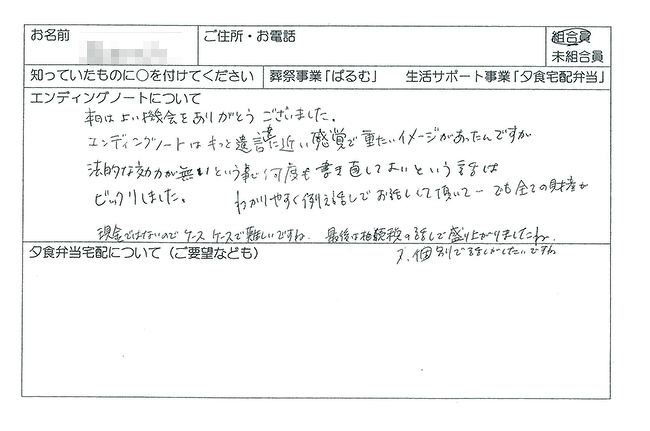 お名前
ご住所・お電話
組合員
未組合員
知っていたものに○を付けてください
葬祭事業「ぱるむ」
生活サポート事業「夕食宅配弁当」
エンディングノートについて
本日はよい機会をありがとうございました。
エンディングノートはもっと遺言に近い感覚で重たいイメージがあったんですが
法的な効力が無いという事で何度も書き直してよいという話は
ビックリしました。 わかりやすく例え話しでお話しして頂いて… でも全ての財産が
現金ではないのでケースケースで難しいですね. 最後は相続税の話しで盛り上がりましたね.
夕食弁当宅配について（ご要望なども）
個別で話しがしたいですね